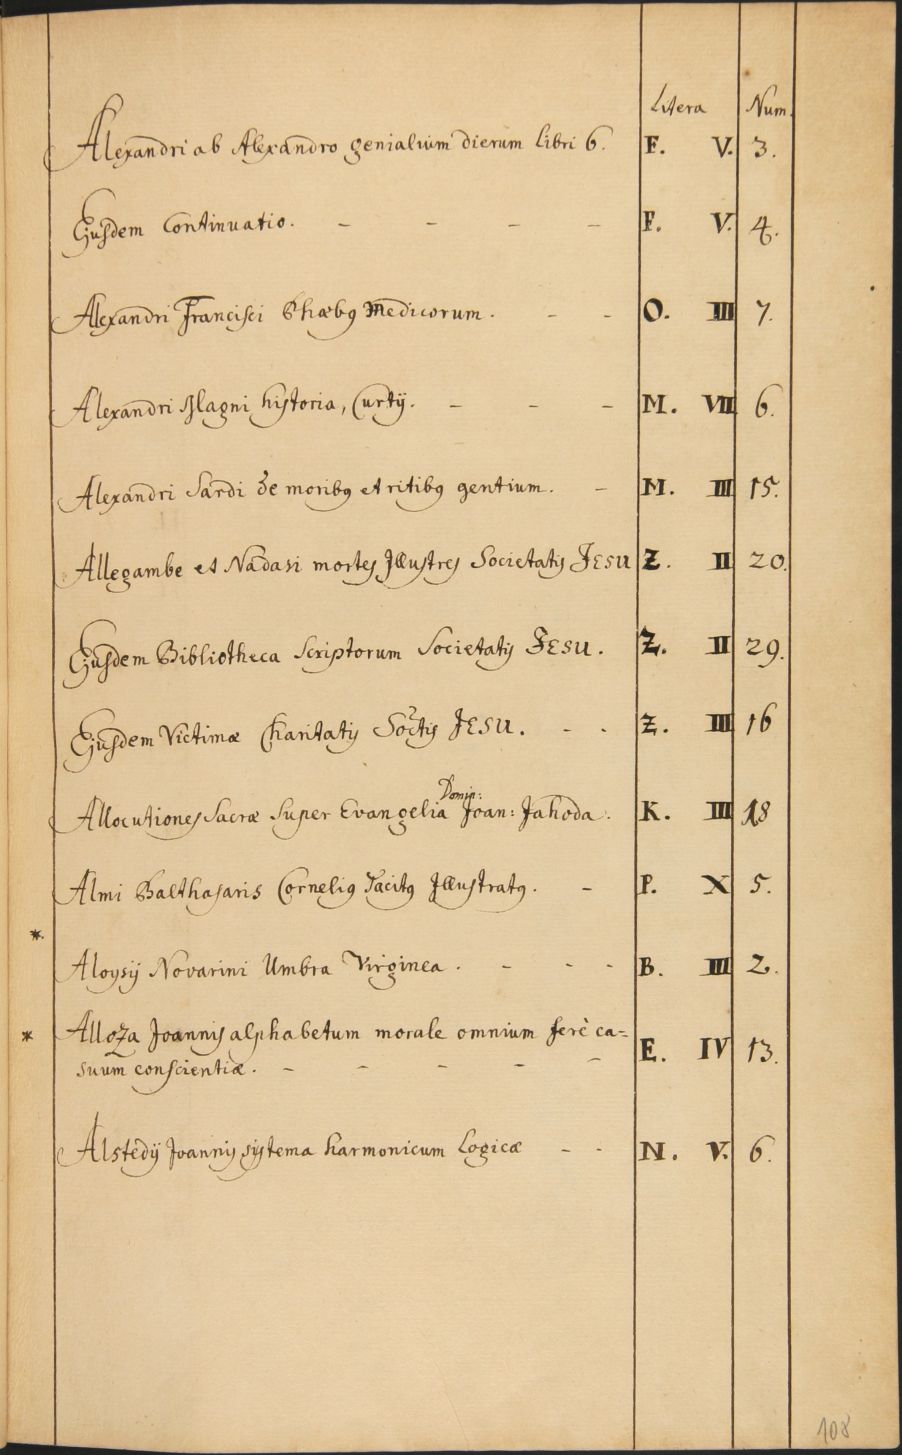 Litera Num.
Alexandri ab Alexandro genialium dierum libri 6. F. V. 3.
Ejusdem Continuatio. - - - - F. V. 4.
Alexandri Francisci Phœbꝯ Medicorum. - - O. III 7.
Alexandri Magni historia, Curtij. - - - M. VII 6.
Alexandri Sardi de moribꝯ et ritibꝯ gentium. - M. III 15.
Allegambe et Nadasi mortes Illustres Societatis JESU Z. II 20.
Ejusdem Bibliotheca Scriptorum Societatis JESU. Z. II 29.
Ejusdem Victimæ Charitatis Soctis JESU. - - Z. III 16
Domin:
Allocutiones Sacræ Super Evangelia Joan: Jahoda. K. III 18
Almi Balthasaris Corneliꝯ Tacitꝯ Illustratꝯ. - P. X 5.
*.
Aloysij Novarini Umbra Virginea. - - - B. III 2.
* Alloza Joannis alphabetum morale omnium ferè ca=
suum conscientiæ. - - - - - E. IV 13.
Alstedij Joannis systema harmonicum Logicæ - - N. V. 6.
108